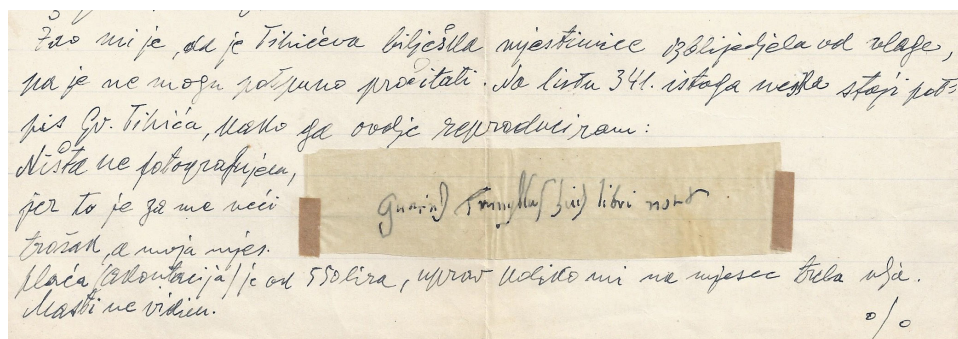 Žao mi je, da je Tihićeva bilješka mjestimice izblijedjela od vlage,
pa je ne mogu potpuno pročitati. Na listu 341. istoga stoji pot=
pis Gv. Tihića, kako ga ovdje reproduciram:
Ništa ne fotografujem,
jer to je za me veći
trošak, a moja mjes.
plaća (akontacija) je od 550 lira, uprav koliko mi na mjesec treba ulja.
Masti ne vidim.
libri
%